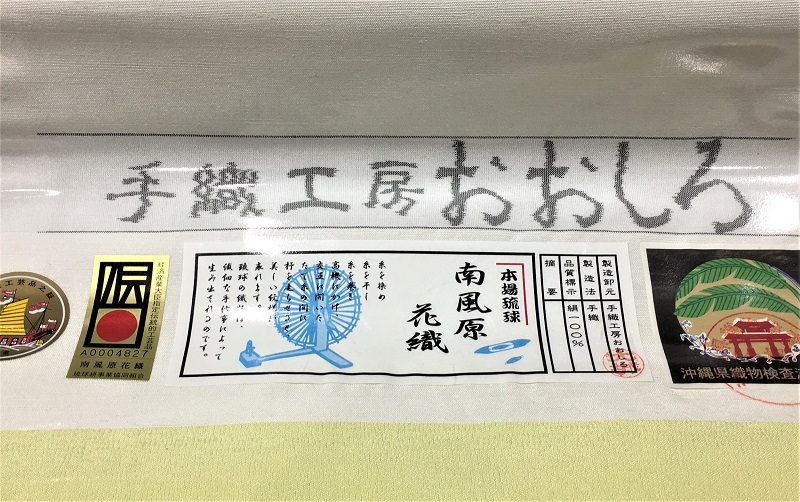 手織工房おおしろ
工芸品之証
経済産業大臣指定伝統的工芸品
A0004827
南風原花織
琉球絣事業協同組合
本場琉球
南風原
花織
糸を染め
糸を干し
糸を巻き
高機にかけ
行きもどりつ
美しい紋様に
表れます。
琉球の織りは、
繊細な手仕事によって
生み出されるのです。
製造卸元 手織工房おおしろ
製造法 手織
品質標示 絹一〇〇%
摘要
沖縄県織物検査済